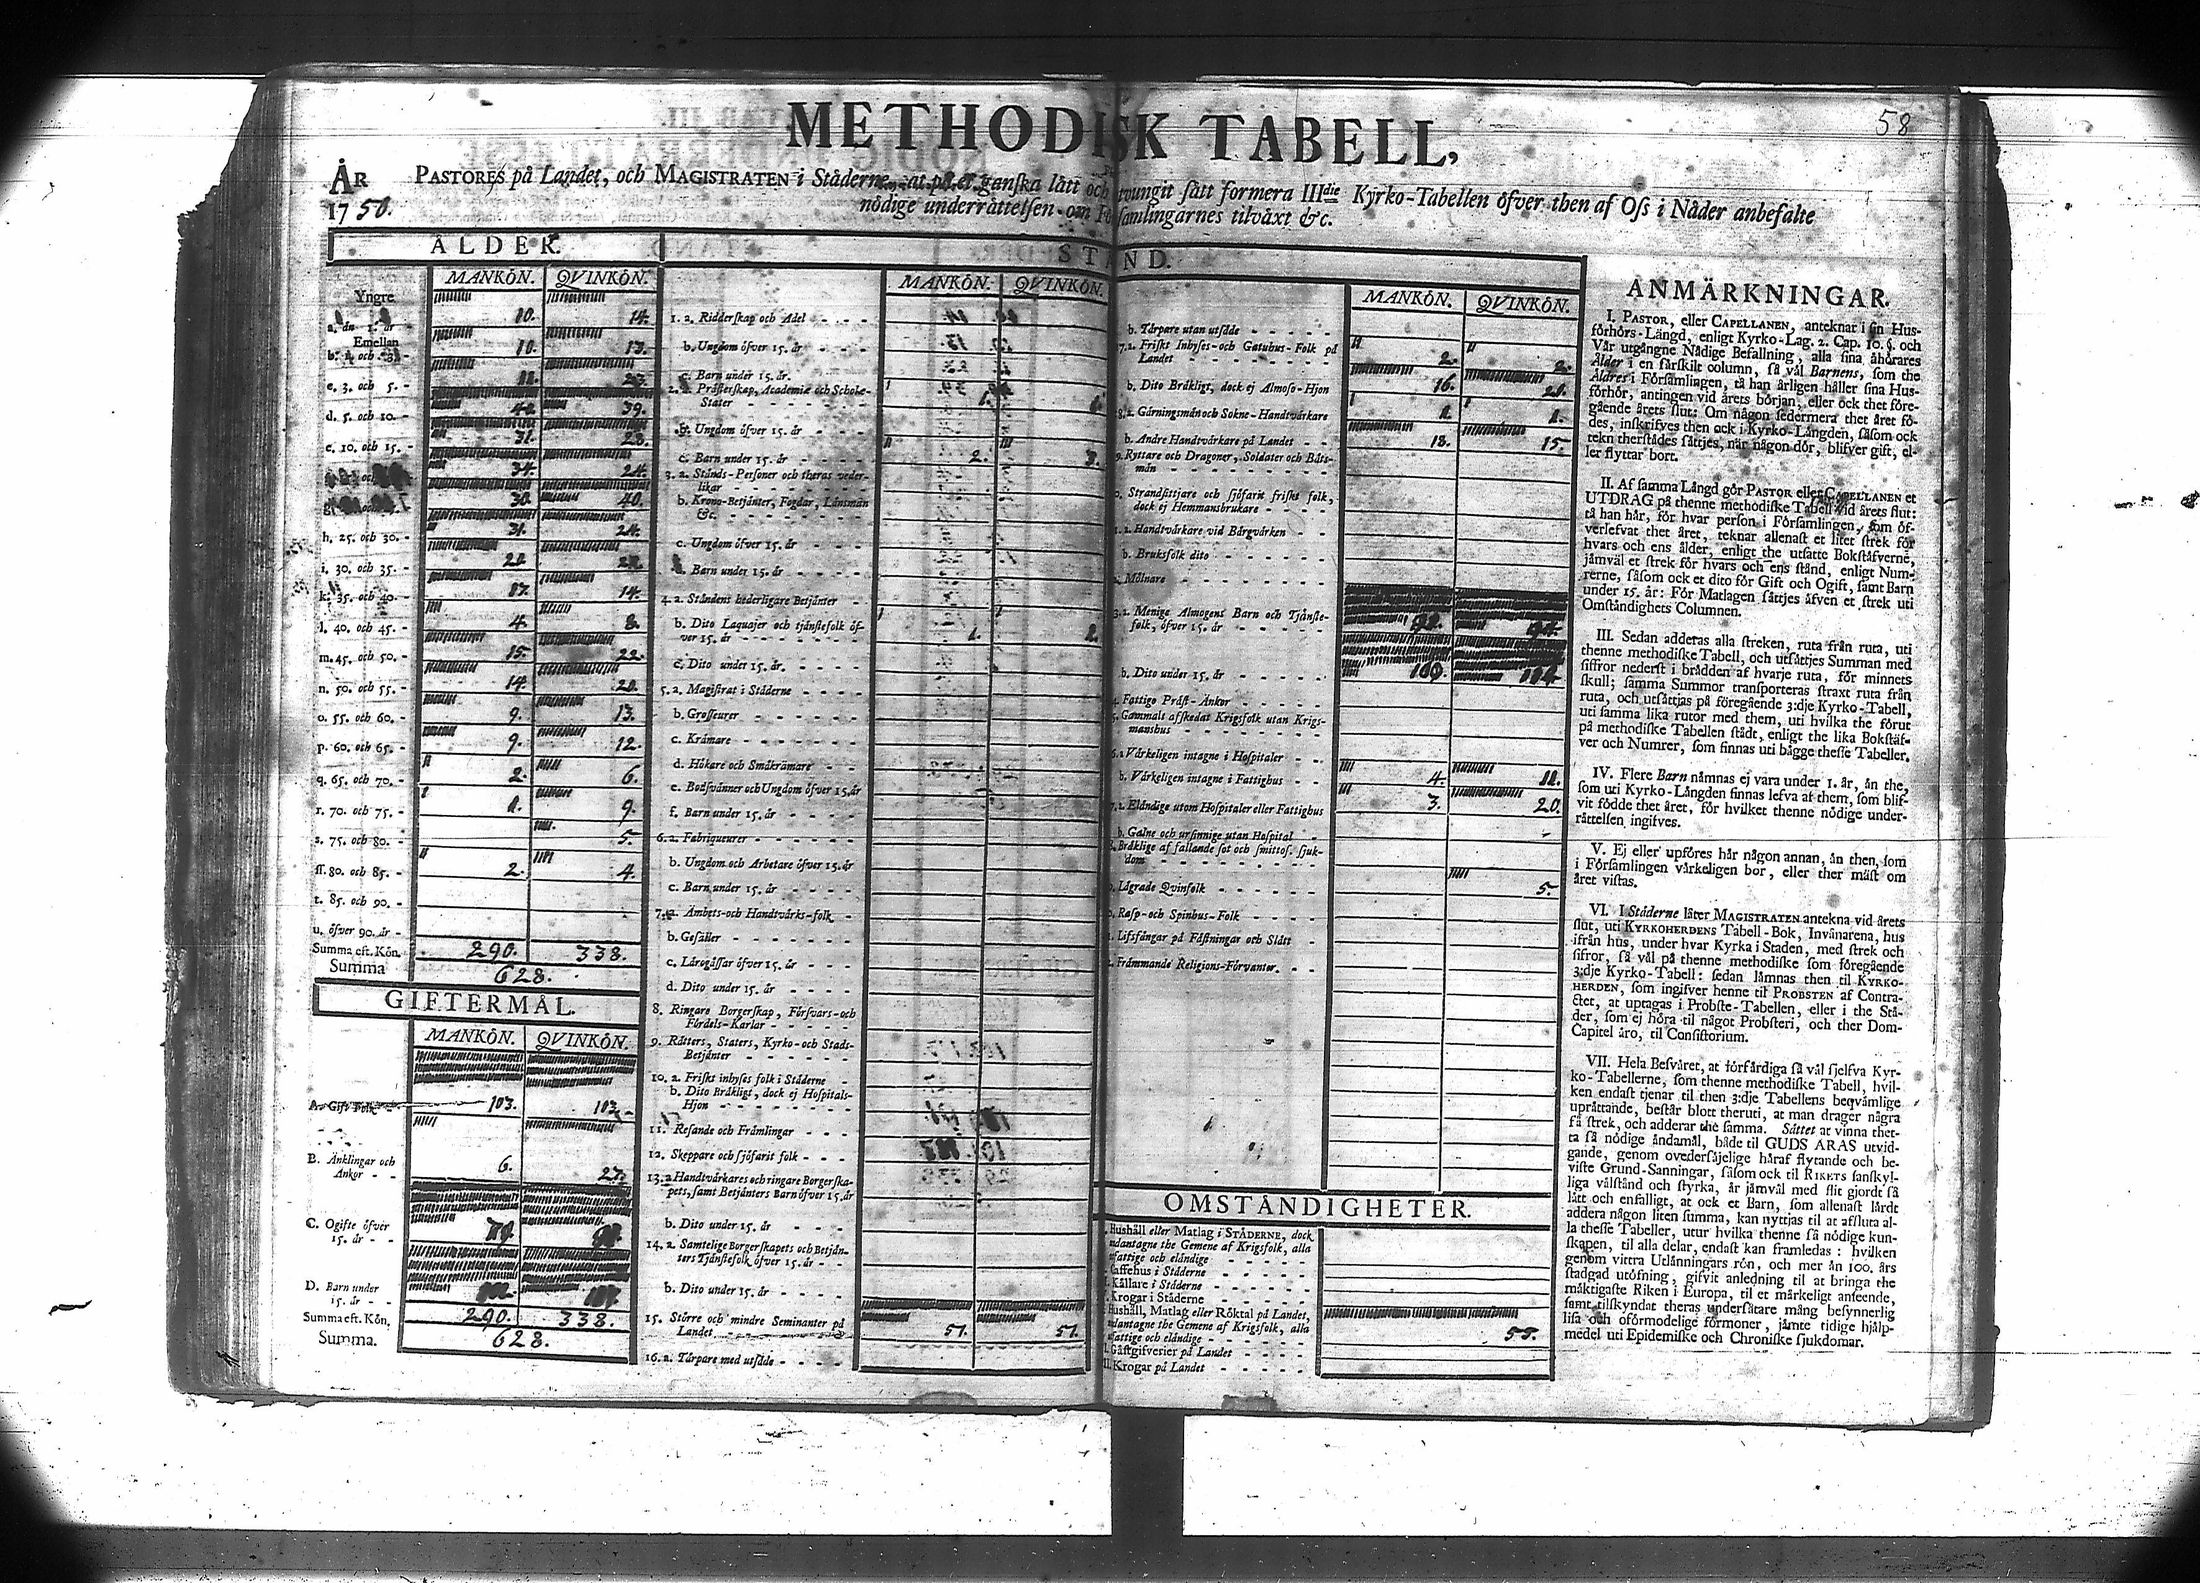 58
METHODISK TABELL,
ÅR 1750.
PASTORES på Landet, och MAGISTRATEN i Städerne, at på et ganska lätt och otvungit sätt formera IIIdie Kyrko-Tabellen öfver then af Oss i Nåder anbefalte
nödige underrättelsen om Församlingarnes tilväxt &c.
ÅLDER.
MANKÖN. QVINKÖN.
Yngre
a. än 1. år 10. 14.
Emellan
b. 1 och 3. 10. 13.
c. 3. och 5. - 23.
d. 5. och 10. - 39.
e. 10. och 15. - 31. 28.
34. 24.
30. 40.
h. 25. och 30. - 31. 24.
i. 30. och 35. -
k. 35. och 40. - 17. 14.
l. 40. och 45. - 4. 8.
m. 45. och 50. - 15. 22.
n. 50. och 55. - 14. 20.
o. 55. och 60. - 9. 13.
p. 60. och 65. - 9. 12.
q. 65. och 70. - 2. 6.
r. 70. och 75. - 1. 9.
s. 75. och 80. - 5.
ſſ. 80. och 85. - 2. 4.
t. 85. och 90. -
u. öfver 90. år -
Summa eft. Kön. 290. 338.
Summa 628.
GIFTERMÅL.
MANKÖN. QVINKÖN.
A. Gift Folk 103. 103.
B. Änklingar och
Änkor - - 6. 27.
C. Ogifte öfver
15. år - -
D. Barn under
15. år - -
Summa eft. Kön, 290. 338.
Summa. 628.
STÅND.
MANKÖN. QVINKÖN.
1. a. Ridderskap och Adel - - - -
b. Ungdom öfver 15. år - - -
c. Barn under 15. år.
2. a. Prästerskap, Academiæ och Schole-
Stater - - - - - - 1.
b. Ungdom öfver 15. år - - - 2. 3.
c. Barn under 15. år - - - -
3. a. Stånds-Personer och theras veder-
likar - - - - - - -
b. Krono-Betjänter, Fogdar, Länsmän
&c. - - - - - - - -
c. Ungdom öfver 15. år - - - -
d. Barn under 15. år - - - -
4. a. Ståndens hederligare Betjänter -
b. Dito Laquajer och tjänstefolk öf-
ver 15. år - - - - - - 1. 2.
c. Dito under 15. år. - - - -
5. a. Magistrat i Städerne - - - -
b. Grosseurer - - - - - -
c. Krämare - - - - - - -
d. Hökare och Småkrämare - - -
e. Bodsvänner och Ungdom öfver 15. år
f. Barn under 15. år - - - -
6. a. Fabriqueurer - - - - - -
b. Ungdom och Arbetare öfver 15. år
c. Barn under 15. år - - - -
7. a. Ämbets- och Handtvärks-folk -
b. Gesäller - - - - - - -
c. Lärogåssar öfver 15. år - - -
d. Dito under 15. år - - - -
8. Ringare Borgerskap, Försvars- och
Fördels-Karlar - - - - -
9. Rätters, Staters, Kyrko- och Stads-
Betjänter - - - - - -
10. a. Friskt inhyses folk i Städerne -
b. Dito Bräkligt, dock ej Hospitals-
Hjon - - - - - - -
11. Resande och Främlingar - - -
12. Skeppare och sjöfarit folk - - -
13. a Handtvärkares och ringare Borgerska-
pets, samt Betjänters Barn öfver 15. år
b. Dito under 15. år - - -
14. a. Samtelige Borgerskapets och Betjän-
ters Tjänstefolk öfver 15. år - -
b. Dito under 15. år - - - -
15. Större och mindre Seminanter på
Landet - - - - - - 51. 51.
16. a. Tårpare med utsäde - - - -
MANKÖN. QVINKÖN.
b. Tårpare utan utsäde - - - - -
7. a. Friskt Inhyses- och Gatuhus-Folk på
Landet - - - - - - - 2. 2.
b. Dito Bräkligt, dock ej Almoso-Hjon 16. 20.
8. a. Gärningsmän och Sokne-Handtvärkare 1. 1.
b. Andre Handtvärkare på Landet - - 15.
9. Ryttare och Dragoner, Soldater och Båts-
män - - - - - - -
0. Strandsittjare och sjöfarit friskt folk,
dock ej Hemmansbrukare - - - -
1. a. Handtvärkare vid Bärgvärken - -
b. Bruksfolk dito - - - - - -
Mölnare - - - - - - -
3. a. Menige Almogens Barn och Tjänste-
folk, öfver 15. år - - - - -
b. Dito under 15. år - - - - -
4. Fattige Präst-Änkor - - - -
5. Gammalt afskedat Krigsfolk utan Krigs-
manshus - - - - - - -
6. a Värkeligen intagne i Hospitaler - -
b. Värkeligen intagne i Fattighus - - 4.
7. a. Eländige utom Hospitaler eller Fattighus 3. 20.
b. Galne och ursinnige utan Hospital -
8. Bräklige af fallande sot och smittos. sjuk-
dom - - - - - - -
9. Lägrade Qvinfolk - - - - - - 5.
0. Rasp- och Spinhus-Folk - - - -
1. Lifsfångar på Fästningar och Slått -
2. Främmande Religions-Förvanter. - -
OMSTÅNDIGHETER.
Hushåll eller Matlag i STÄDERNE, dock
undantagne the Gemene af Krigsfolk, alla
fattige och eländige - - - - -
Caffehus i Städerne - - - - -
Källare i Städerne - - - - -
Krogar i Städerne - - - - -
Hushåll, Matlag eller Röktal på Landet,
undantagne the Gemene af Krigsfolk, alla
fattige och eländige - - - - - 55.
Gästgifverier på Landet - - - -
Krogar på Landet - - - -
ANMÄRKNINGAR.
I. PASTOR, eller CAPELLANEN, anteknar i sin Hus-
förhörs-Längd, enligt Kyrko-Lag. 2. Cap. 10. §. och
Vår utgångne Nådige Befallning, alla sina åhörares
Ålder i en särskilt column, så väl Barnens, som the
Äldres i Församlingen, tå han årligen håller sina Hus-
förhör, antingen vid årets början, eller ock thet före-
gående årets slut: Om någon sedermera thet året fö-
des, inskrifves then ock i Kyrko-Längden, såsom ock
tekn therstädes sättjes, när någon dör, blifver gift, el-
ler flyttar bort.
II. Af samma Längd gör PASTOR eller CAPELLANEN et
UTDRAG på thenne methodiske Tabell vid årets slut:
tå han här, för hvar person i Församlingen, som öf-
verlefvat thet året, teknar allenast et litet strek för
hvars och ens ålder, enligt the utsatte Bokstäfverne,
jämväl et strek för hvars och ens stånd, enligt Num-
rerne, såsom ock et dito för Gift och Ogift, samt Barn
under 15. år: För Matlagen sättjes äfven et strek uti
Omständighets Columnen.
III. Sedan adderas alla streken, ruta från ruta, uti
thenne methodiske Tabell, och utsättjes Summan med
siffror nederst i brädden af hvarje ruta, för minnets
skull; samma Summor transporteras straxt ruta från
ruta, och utsättjas på föregående 3:dje Kyrko-Tabell,
uti samma lika rutor med them, uti hvilka the förut
på methodiske Tabellen städt, enligt the lika Bokstäf-
ver och Numrer, som finnas uti bägge thesse Tabeller.
IV. Flere Barn nämnas ej vara under 1. år, än the,
som uti Kyrko-Längden finnas lefva af them, som blif-
vit födde thet året, för hvilket thenne nödige under-
rättelsen ingifves.
V. Ej eller upföres här någon annan, än then, som
i Församlingen värkeligen bor, eller ther mäst om
året vistas.
VI. I Städerne låter MAGISTRATEN antekna vid årets
slut, uti KYRKOHERDENS Tabell-Bok, Invånarena, hus
ifrån hus, under hvar Kyrka i Staden, med strek och
sifror, så väl på thenne methodiske som föregående
3:dje Kyrko-Tabell: sedan lämnas then til KYRKO-
HERDEN, som ingifver henne til PROBSTEN af Contra-
ctet, at uptagas i Probste-Tabellen, eller i the Stä-
der, som ej höra til något Probsteri, och ther Dom-
Capitel äro, til Consistorium.
VII. Hela Besväret, at förfärdiga så väl sjelfva Kyr-
ko-Tabellerne, som thenne methodiske Tabell, hvil-
ken endast tjenar til then 3:dje Tabellens beqvämlige
uprättande, består blott theruti, at man drager några
få strek, och adderar the samma. Sättet at vinna thet-
ta så nödige ändamål, både til GUDS ÄRAS utvid-
gande, genom ovedersäjelige häraf flytande och be-
viste Grund-Sanningar, såsom ock til RIKETS sanskyl-
liga välstånd och styrka, är jämväl med flit gjordt så
lätt och enfalligt, at ock et Barn, som allenast lärdt
addera någon liten summa, kan nyttjas til at afsluta al-
la thesse Tabeller, utur hvilka thenne så nödige kun-
skapen, til alla delar, endast kan framledas: hvilken
genom vittra Utlänningars rön, och mer än 100. års
stadgad utöfning, gifvit anledning til at bringa the
mäktigaste Riken i Europa, til et märkeligt anseende,
samt tilskyndat theras undersåtare mång besynnerlig
lisa och oförmodelige förmoner, jämte tidige hjälp-
medel uti Epidemiske och Chroniske sjukdomar.